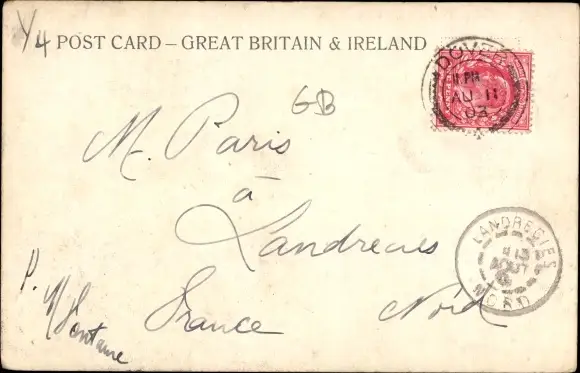 Y4
POST CARD – GREAT BRITAIN & IRELAND
DOVER
11 PM
AU 11
03
GB
M. Paris
à
Landrecies
France Nord
P.
LANDRECIES
13
AOUT
NORD